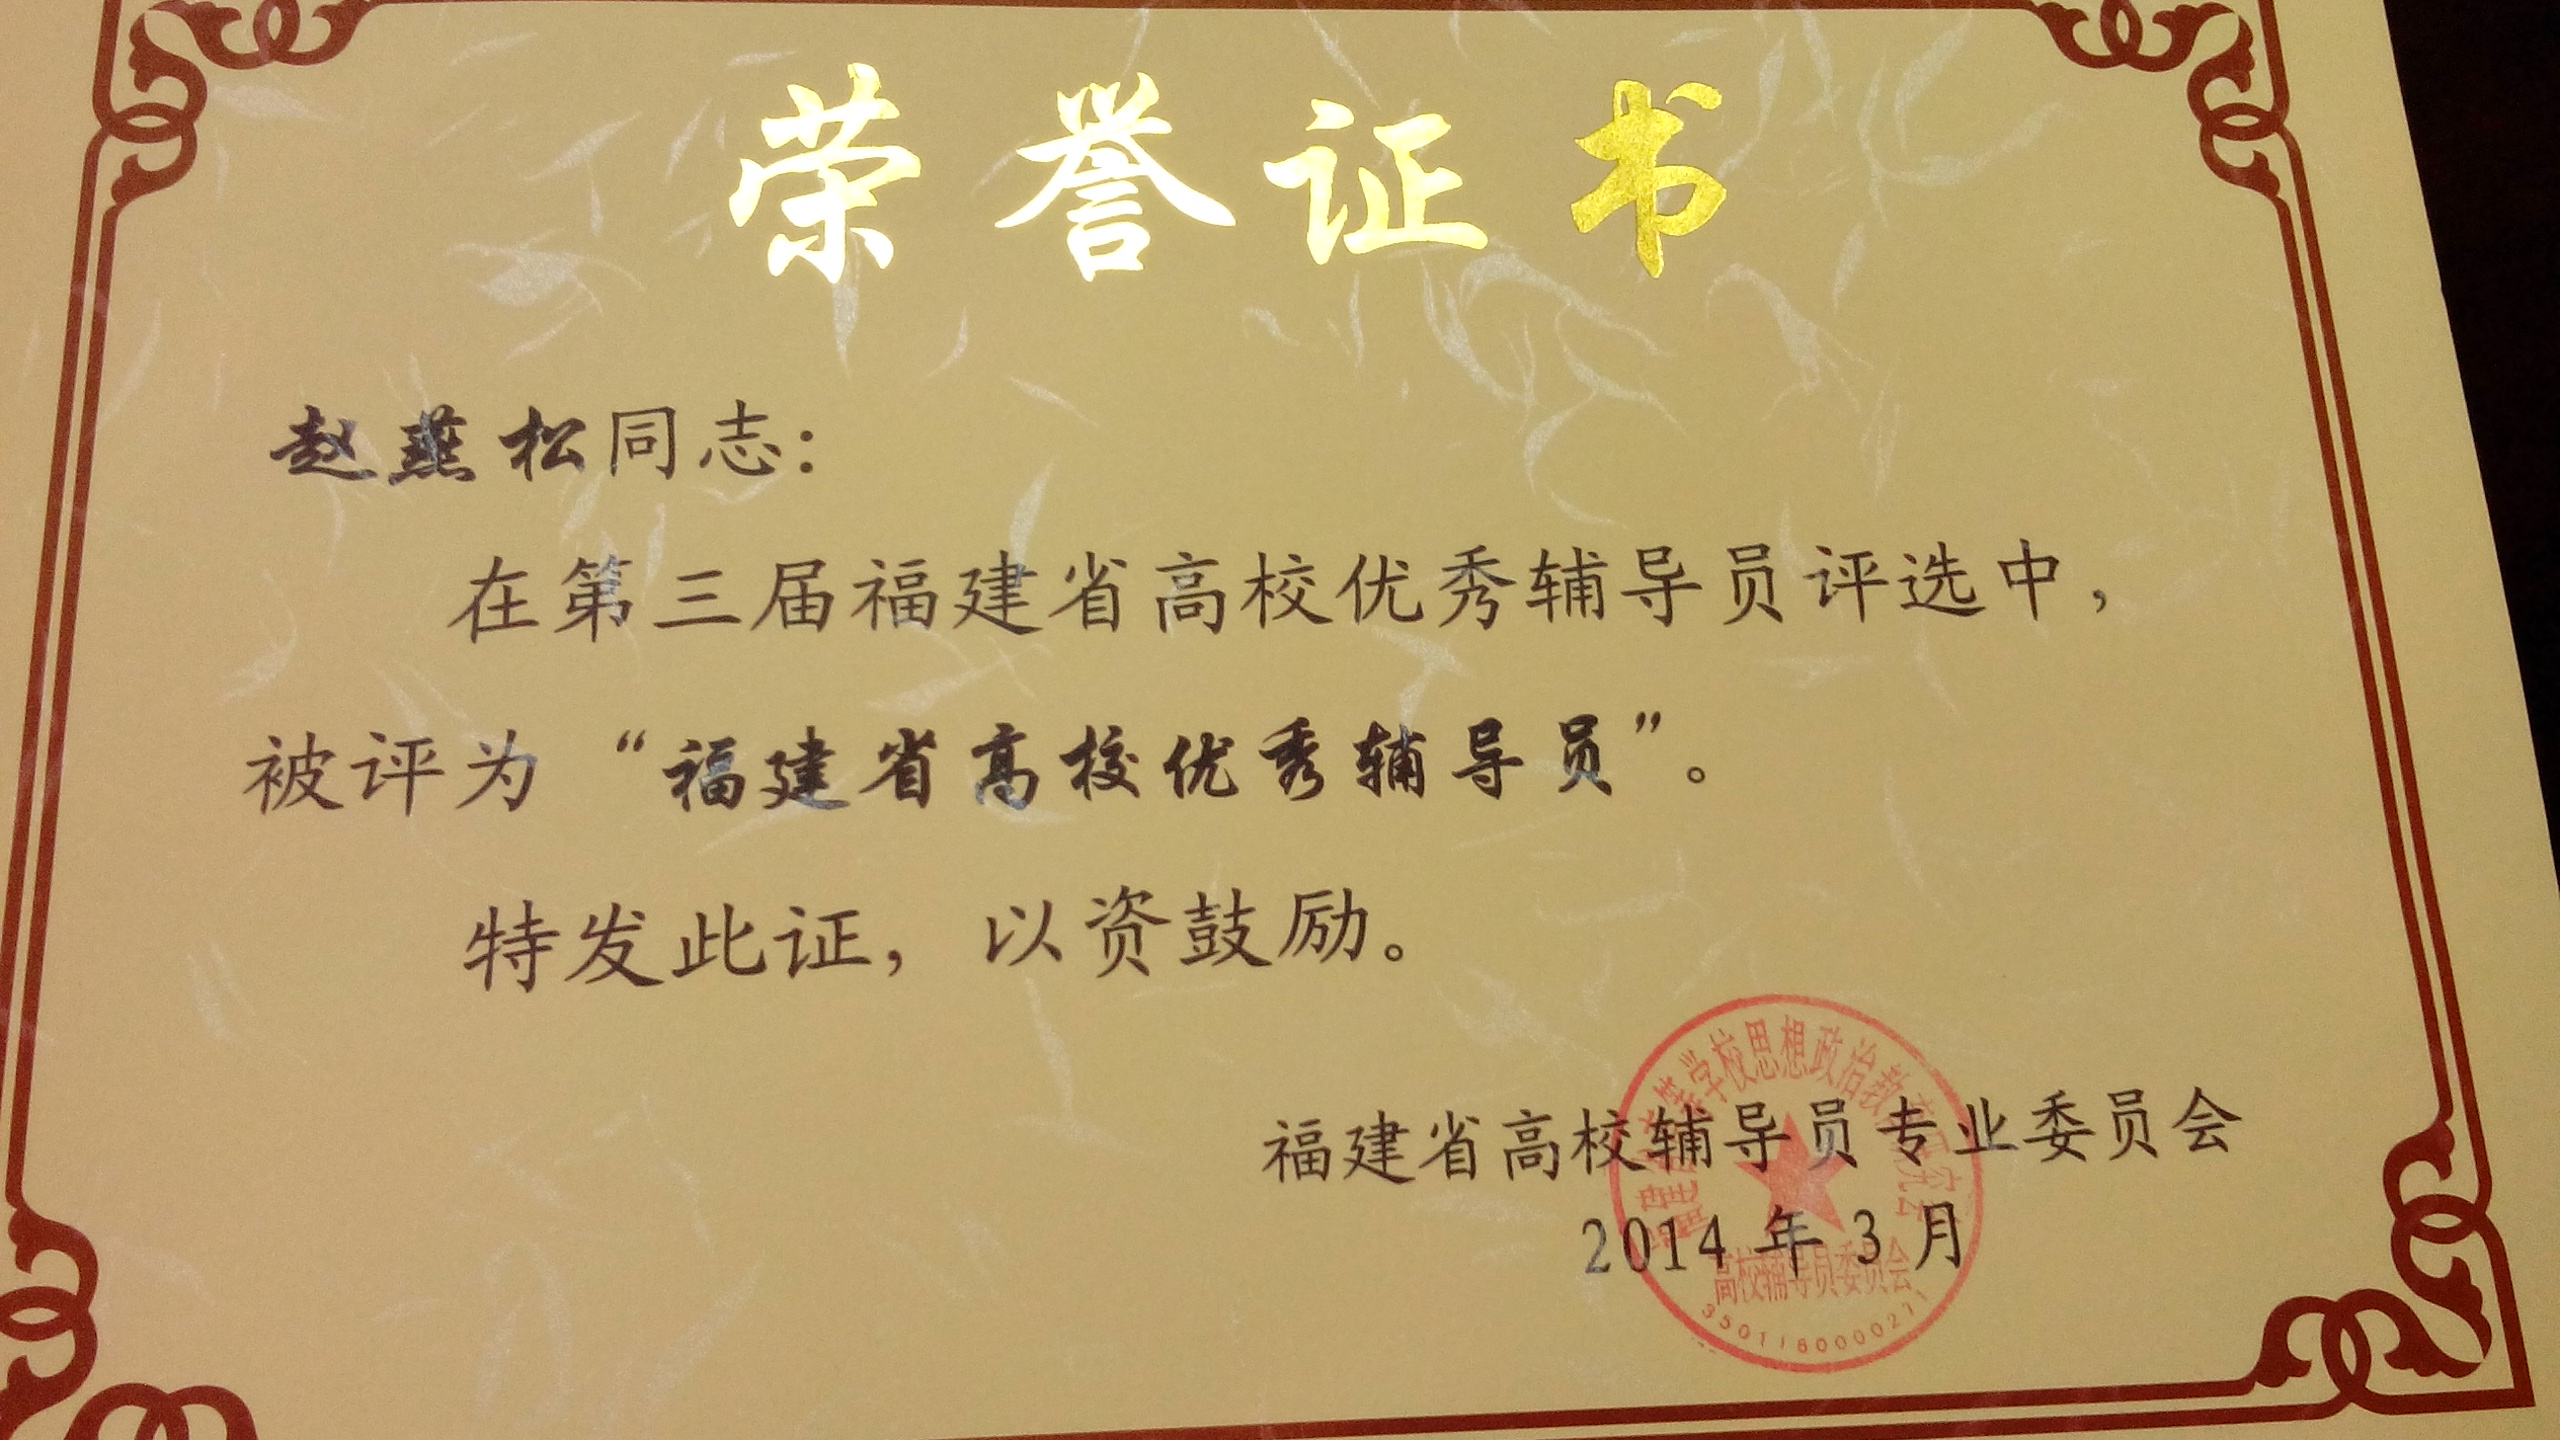 荣誉证书
赵燕松同志：
在第三届福建省高校优秀辅导员评选中，
被评为“福建省高校优秀辅导员”。
特发此证，以资鼓励。
福建省高校辅导员专业委员会
2014年3月
福建省高等学校思想政治教育研究会
高校辅导员委员会